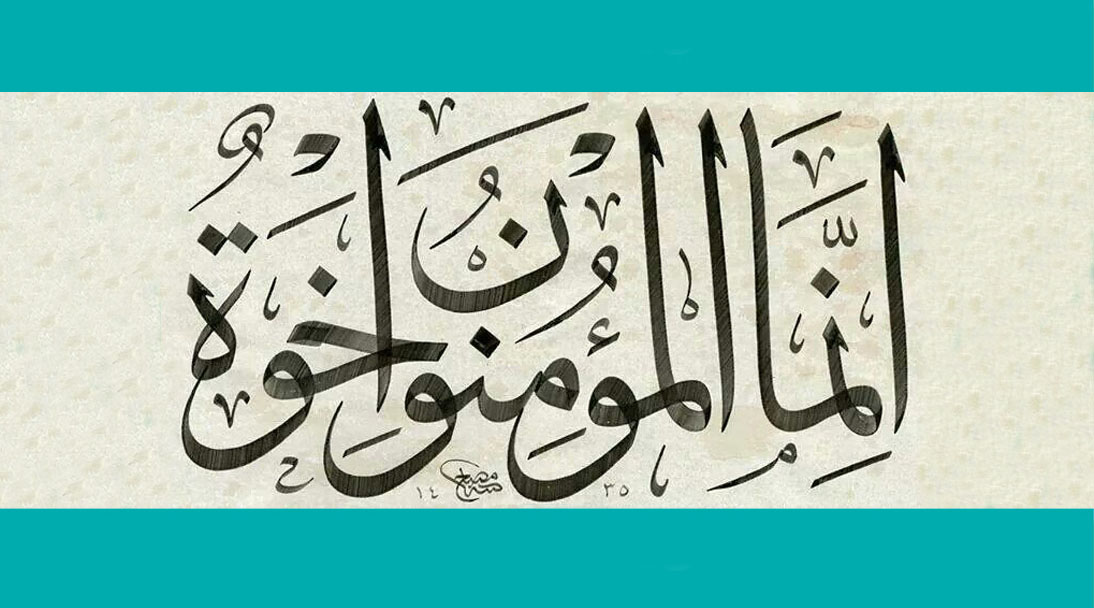 إِنَّمَا الْمُؤْمِنُونَ إِخْوَةٌ
١٤ ٣٥